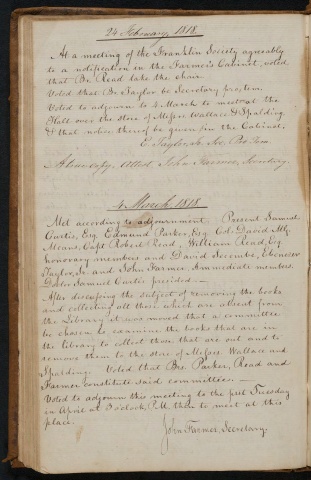 24 February, 1818.
At a meeting of the Franklin Society agreeably
to a notification in the Farmer's Cabinet, voted
that Br. Read take the chair
Voted that Br. Taylor be Secretary protem.
Voted to adjourn to 4 March to meet at the
Hall over the store of Messrs. Wallace & Spalding
& that notice thereof be given in the Cabinet,
E. Taylor, Jr. Sec. Pro Tem.
A true copy, Attest John Farmer, Secretary.
4 March 1818
Met according to adjournment. Present Samuel
Curtis, Esq. Edmund Parker, Esq. Col. David Mc.
Means, Capt. Robert Read, William Read, Esq.
honorary members and David Secombe, Ebenezer
Taylor, Jr. and John Farmer, immediate members.
Doctor Samuel Curtis presided.—
After discussing the subject of removing the books
and collecting all those which are absent from
the Library it was moved that a committee
be chosen to examine the books that are in
the library to collect those that are out and to
remove them to the store of Messrs. Wallace and
Spalding. Voted that Brs. Parker, Read and
Farmer constitute said committee.—
Voted to adjourn this meeting to the first Tuesday
in April at o'clock, P.M. then to meet at this
place.
John Farmer, Secretary.